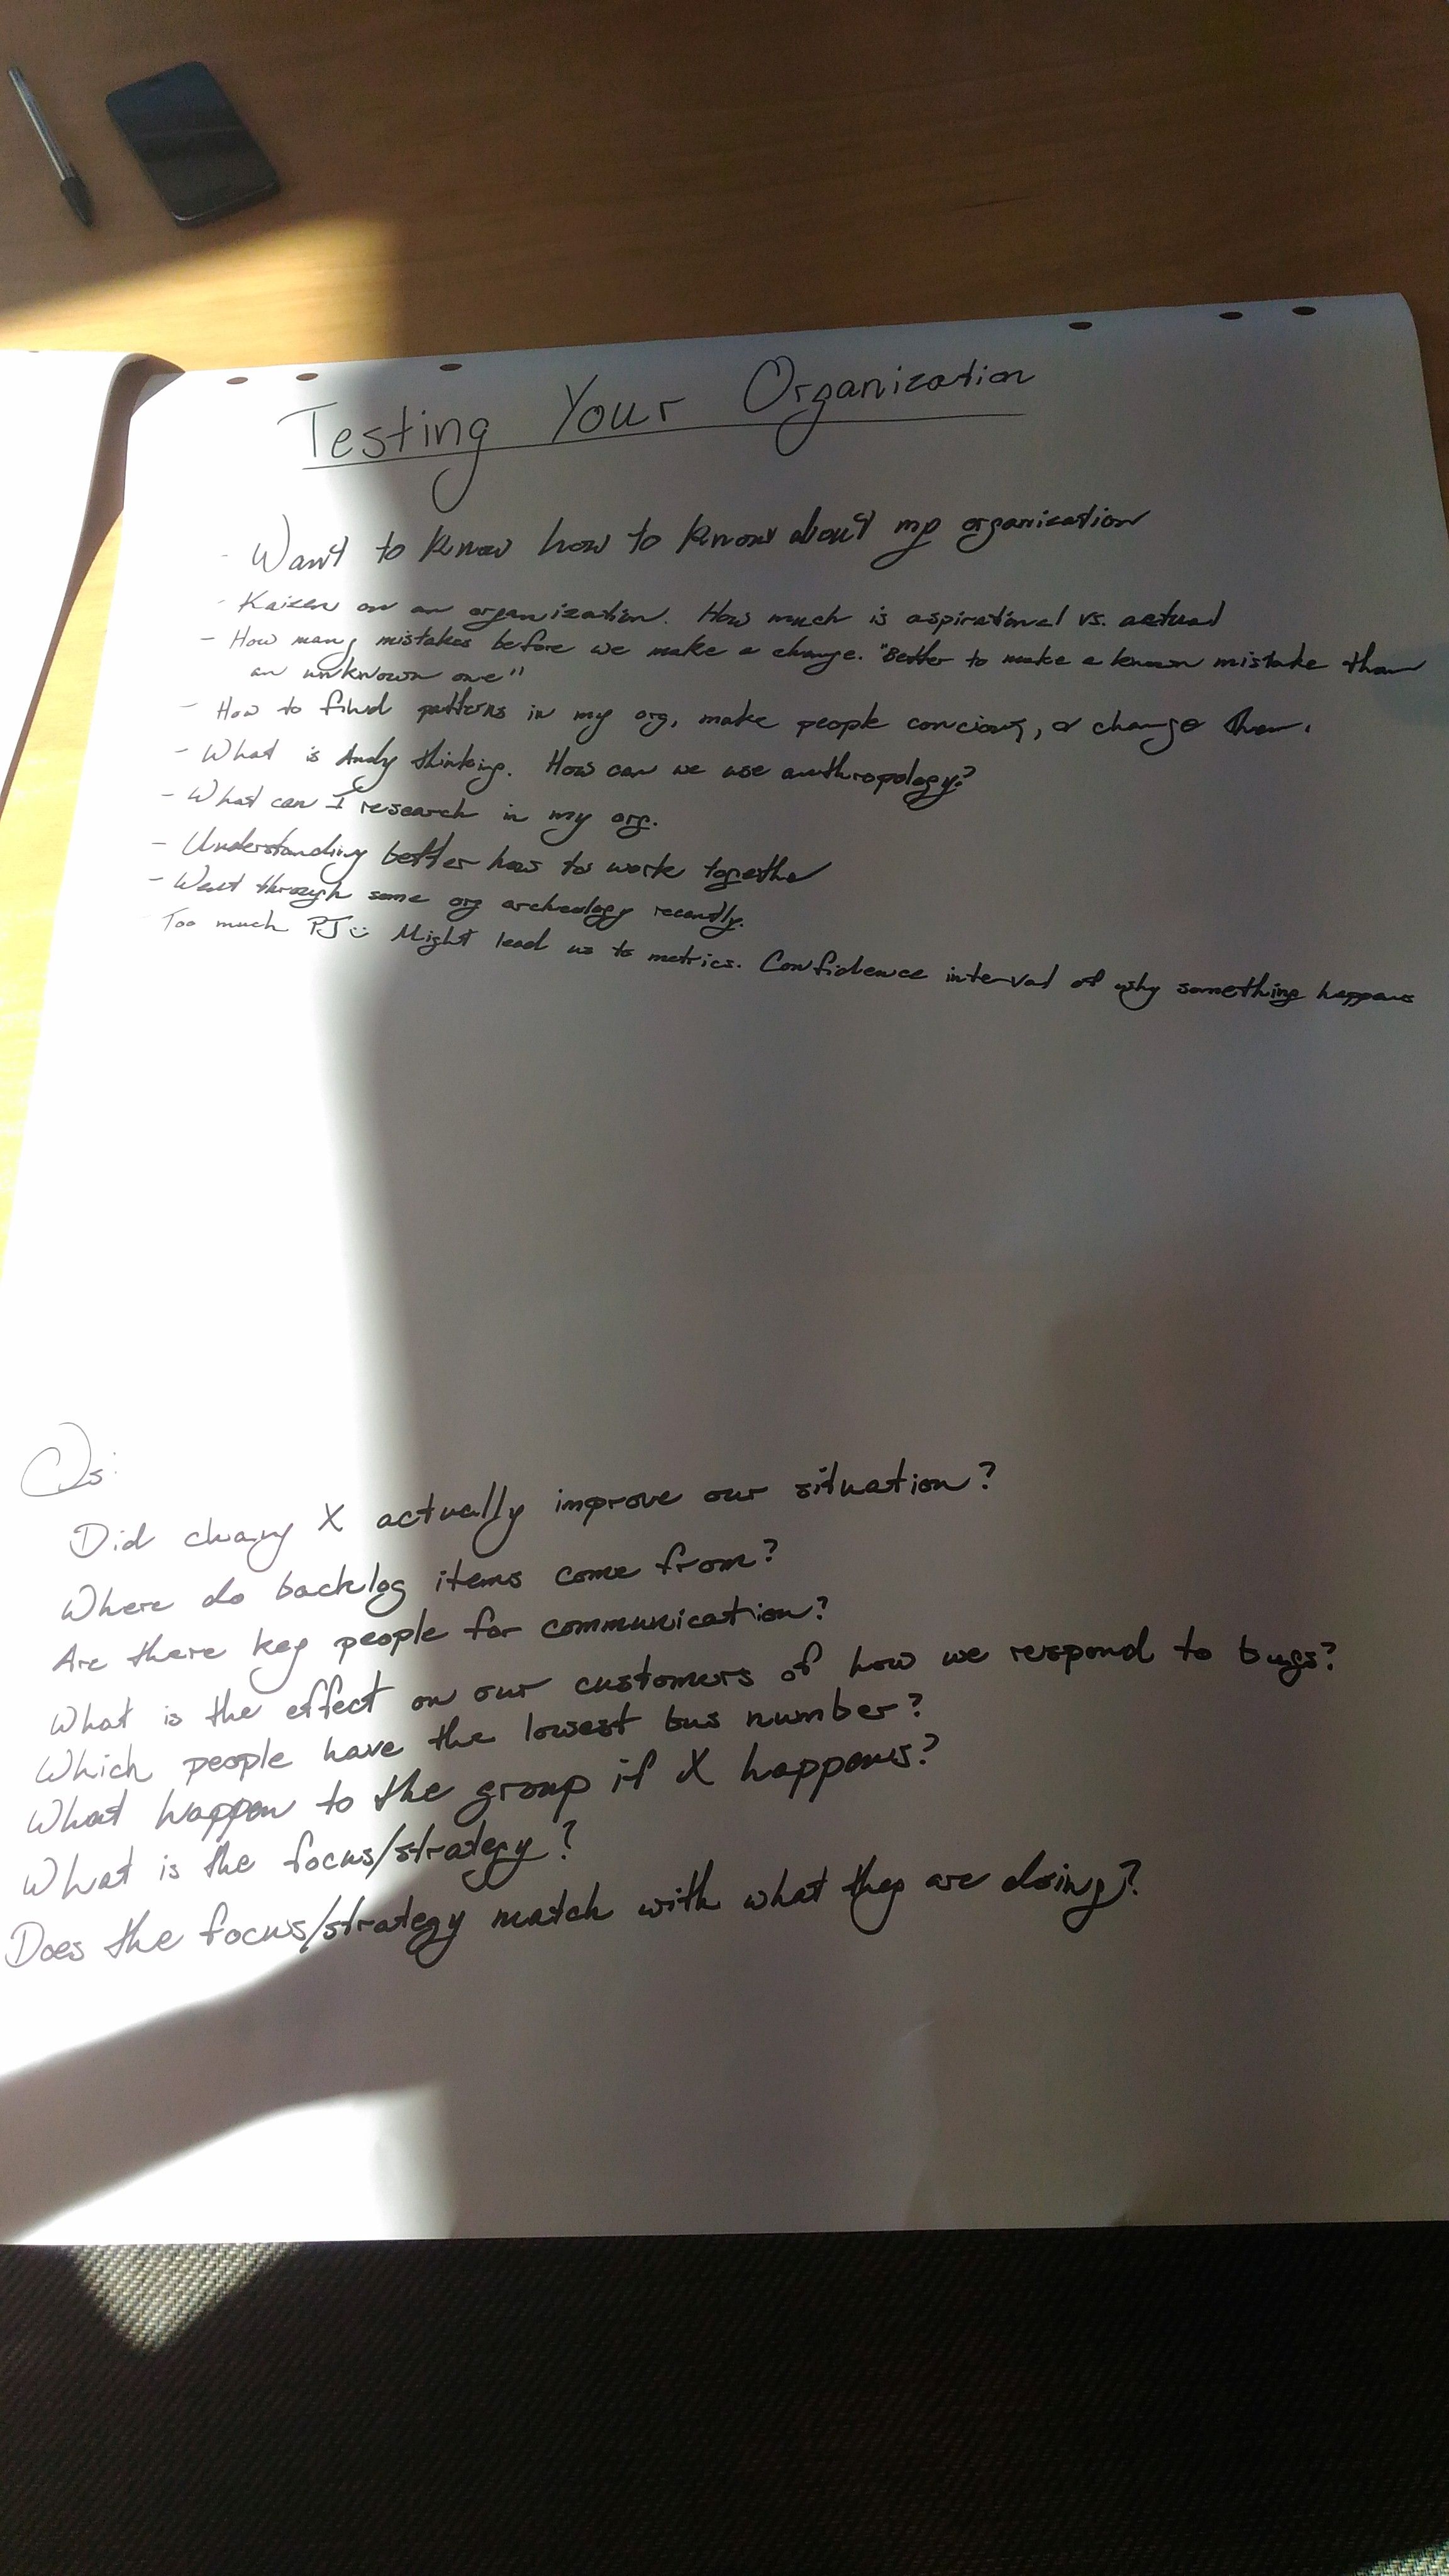 Testing Your Organization
- Want to know how to know about my organization
- Kaizen on an organization. How much is aspirational vs. actual
- How many mistakes before we make a change. "Better to make a known mistake than
an unknown one"
- How to find patterns in my org, make people concious, or change them.
- What is Andy thinking. How can we use anthropology?
- What can I research in my org.
- Understanding better how to work together
- Went through some org archeology recently.
Too much PJ :) Might lead us to metrics. Confidence interval of why something happens
Qs:
Did chang X actually improve our situation?
Where do backlog items come from?
Are there key people for communication?
What is the effect on our customers of how we respond to bugs?
Which people have the lowest bus number?
What happen to the group if X happens?
What is the focus/strategy?
Does the focus/strategy match with what they are doing?